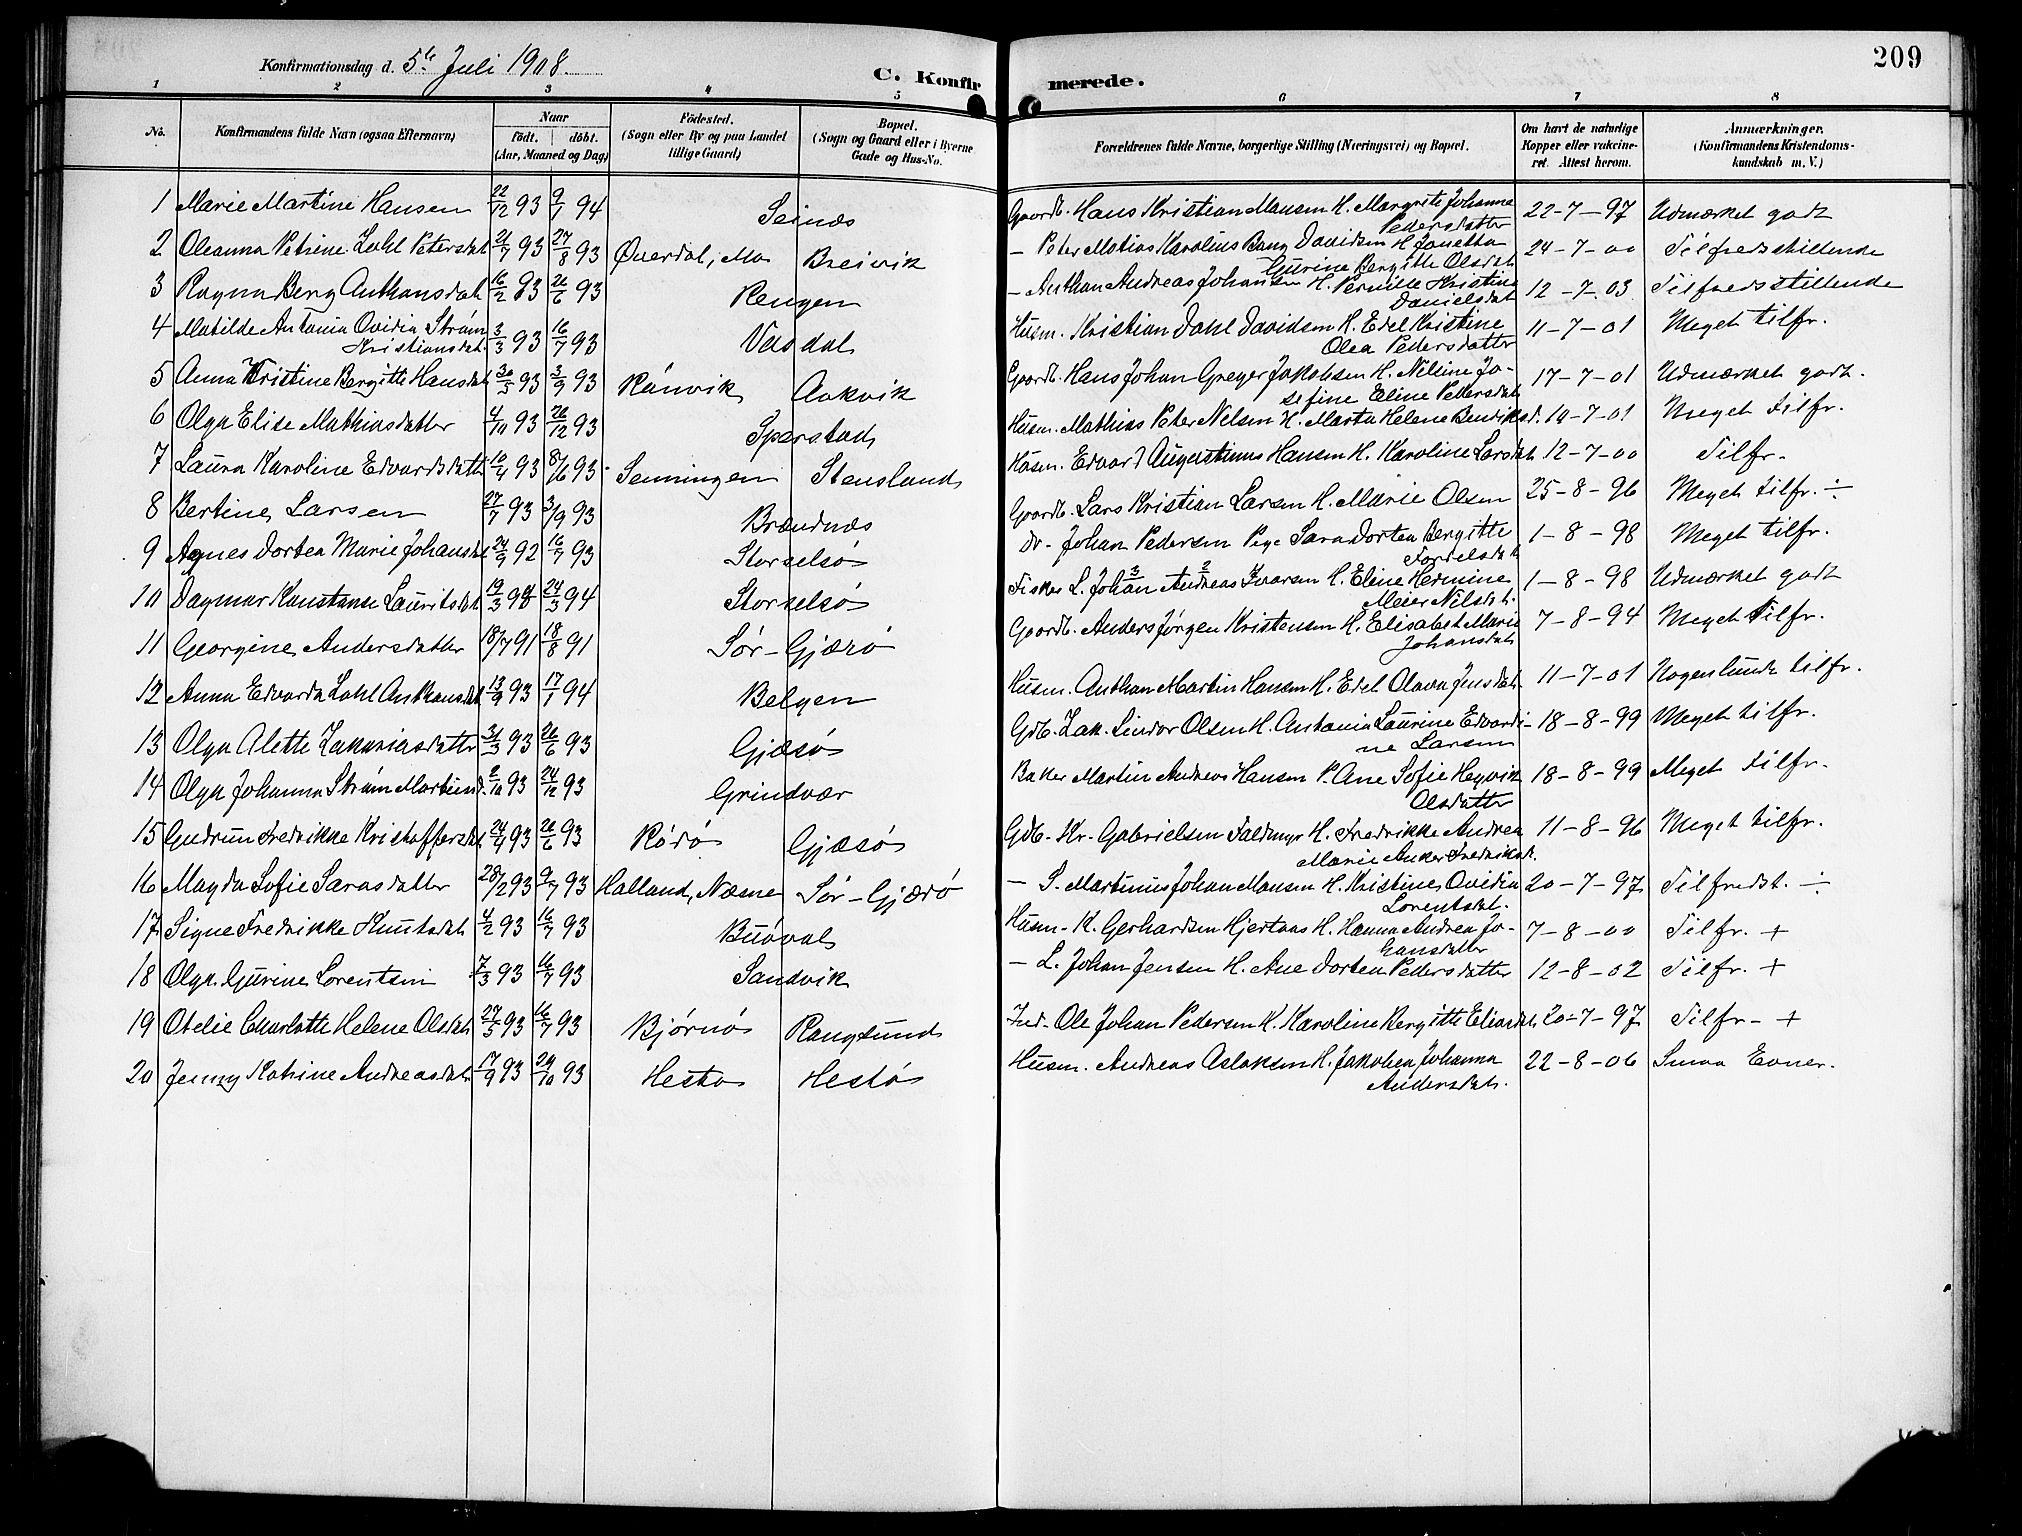 209
Konfirmationsdag d. 5te Juli 1908.
C. Konfirmerede.
1 2 3 4 5 6 7 8
No.
Konfirmandens fulde Navn (ogsaa Efternavn)
Naar
født. døbt.
(Aar, Maaned og Dag)
Fødested.
(Sogn eller By og paa Landet
tillige Gaard)
Bopæl.
(Sogn og Gaard eller i Byerne
Gade og Hus-No.
Forældrenes fulde Navne, borgerlige Stilling (Næringsvei) og Bopæl.
Om havt de naturlige
Kopper eller vakcine-
ret. Attest herom.
Anmærkninger.
(Konfirmandens Kristendoms-
kundskab m. V.)
1 Marie Martine Hansen 22/12 93 9/1 94 Seines Gaardb. Hans Kristian Hansen H. Margrite Johanna Pedersdatter 22-7-97 Udmærket godt
2 Oleanna Petrine Zahl Petersdat 21/7 93 27/8 93 Øverdal, Mo Breivik - Peter Matias Karolius Bang Davidsen H. Janetta Gurine Bergitte Olsdat. 24-7-00 Tilfredsstillende
3 Ragna Berg Anthonsdat 16/2 93 26/6 93 Rengen - Anthon Andreas Johansen H. Pernille Kristine Danielsdat 12-7-03 Tilfredsstillende
4 Matilde Antonia Ovidia Strøm Kristiansdat. 3/3 93 16/7 93 Vasdal Husm. Kristian Dahl Davidsen H. Edel Kristine Olea Pedersdatter 11-7-01 Meget tilfr.
5 Anna Kristine Bergitte Hansdat 30/5 93 3/9 93 Rånvik Aakvik Gaardb. Hans Johan Greger Jakobsen H. Nilsine Josefine Eline Pettersdat 17-7-01 Udmærket godt.
6 Olga Elise Mathiasdatter 4/10 93 26/12 93 Sperstad Husm. Mathias Peter Nilsen H. Marta Helene Bendiksd. 10-7-01 Meget tilfr.
7 Laura Karoline Edvardsdatter 10/4 93 8/6 93 Senningen Stensland Husm. Edvard Augustinus Hansen H. Karoline Larsdat 12-7-00 Tilfr.
8 Bertine Larsen 27/7 93 3/9 93 Brændnæs Gaardb. Lars Kristian Larsen H. Marie Olsen 25-8-96 Meget tilfr. ÷
9 Agnes Dortea Marie Johansdat 24/9 92 16/7 93 Storselsø Dr. Johan Pedersen Pige Sara Dortea Bergitte Tordelsdat 1-8-98 Meget tilfr.
10 Dagmar Konstanse Lauritsdat 19/3 93 24/3 94 Storselsø Fisker L. Johan Andreas Ivarsen H. Eline Hermine Meier Nilsdat. 1-8-98 Udmærket godt
11 Georgine Andersdatter 18/7 91 18/8 91 Sør-Gjærø Gaardb. Anders Jørgen Kristensen H. Elisabet Marie Johansdat 7-8-94 Meget tilfr.
12 Anna Edvarda Zahl Anthonsdat 13/9 93 17/1 94 Belgen Husm. Anthon Martin Hansen H. Edel Olava Jensdat. 11-7-01 Nogenlunde tilfr.
13 Olga Alette Zakariasdatter 31/3 93 26/6 93 Gjæsø Gdb. Zak. Sindor Olsen H. Antonia Laurine Edvardine Larsen 18-8-99 Meget tilfr.
14 Olga Johanna Strøm Martinsd. 2/10 93 24/12 93 Grindvær Baker Martin Andreas Hansen P. Ane Sofie Høgvik Olsdatter 18-8-99 Meget tilfr.
15 Gudrun Fredrikke Kristoffersdat 24/4 93 26/6 93 Rødø Gjæsø Gdb. Kr. Gabrielsen Faldmyr H. Fredrikke Andrea Marie Anker Fredriksd. 11-8-96 Meget tilfr.
16 Magda Sofie Sarasdatter 28/2 93 9/7 93 Halland, Næsne Sør-Gjærø - S. Martinus Johan Hansen H. Kristine Ovidia Lorentsdat. 20-7-97 Tilfredst. ÷
17 Signe Fredrikke Knutsdat 4/2 93 16/7 93 Buøval Husm. K. Gerhardsen Hjertaas H. Hanna Andrea Johansdatter 7-8-00 Tilfr. +
18 Olga Gurine Lorentsen 7/3 93 16/7 93 Sandvik - L. Johan Jensen H. Ane Dortea Pedersdatter 12-8-02 Tilfr. +
19 Otelie Charlotte Helene Olsdat 27/5 93 16/7 93 Bjørnø Rangsund Ind. Ole Johan Pedersen K. Karoline Bergitte Eliasdat 20-7-97 Tilfr. - +
20 Jenny Katrine Andreasdat 17/9 93 29/10 93 Hestø Hestø Husm. Andreas Aslaksen H. Jakobea Johanna Andersdat. 22-8-06 Smaa Evner.